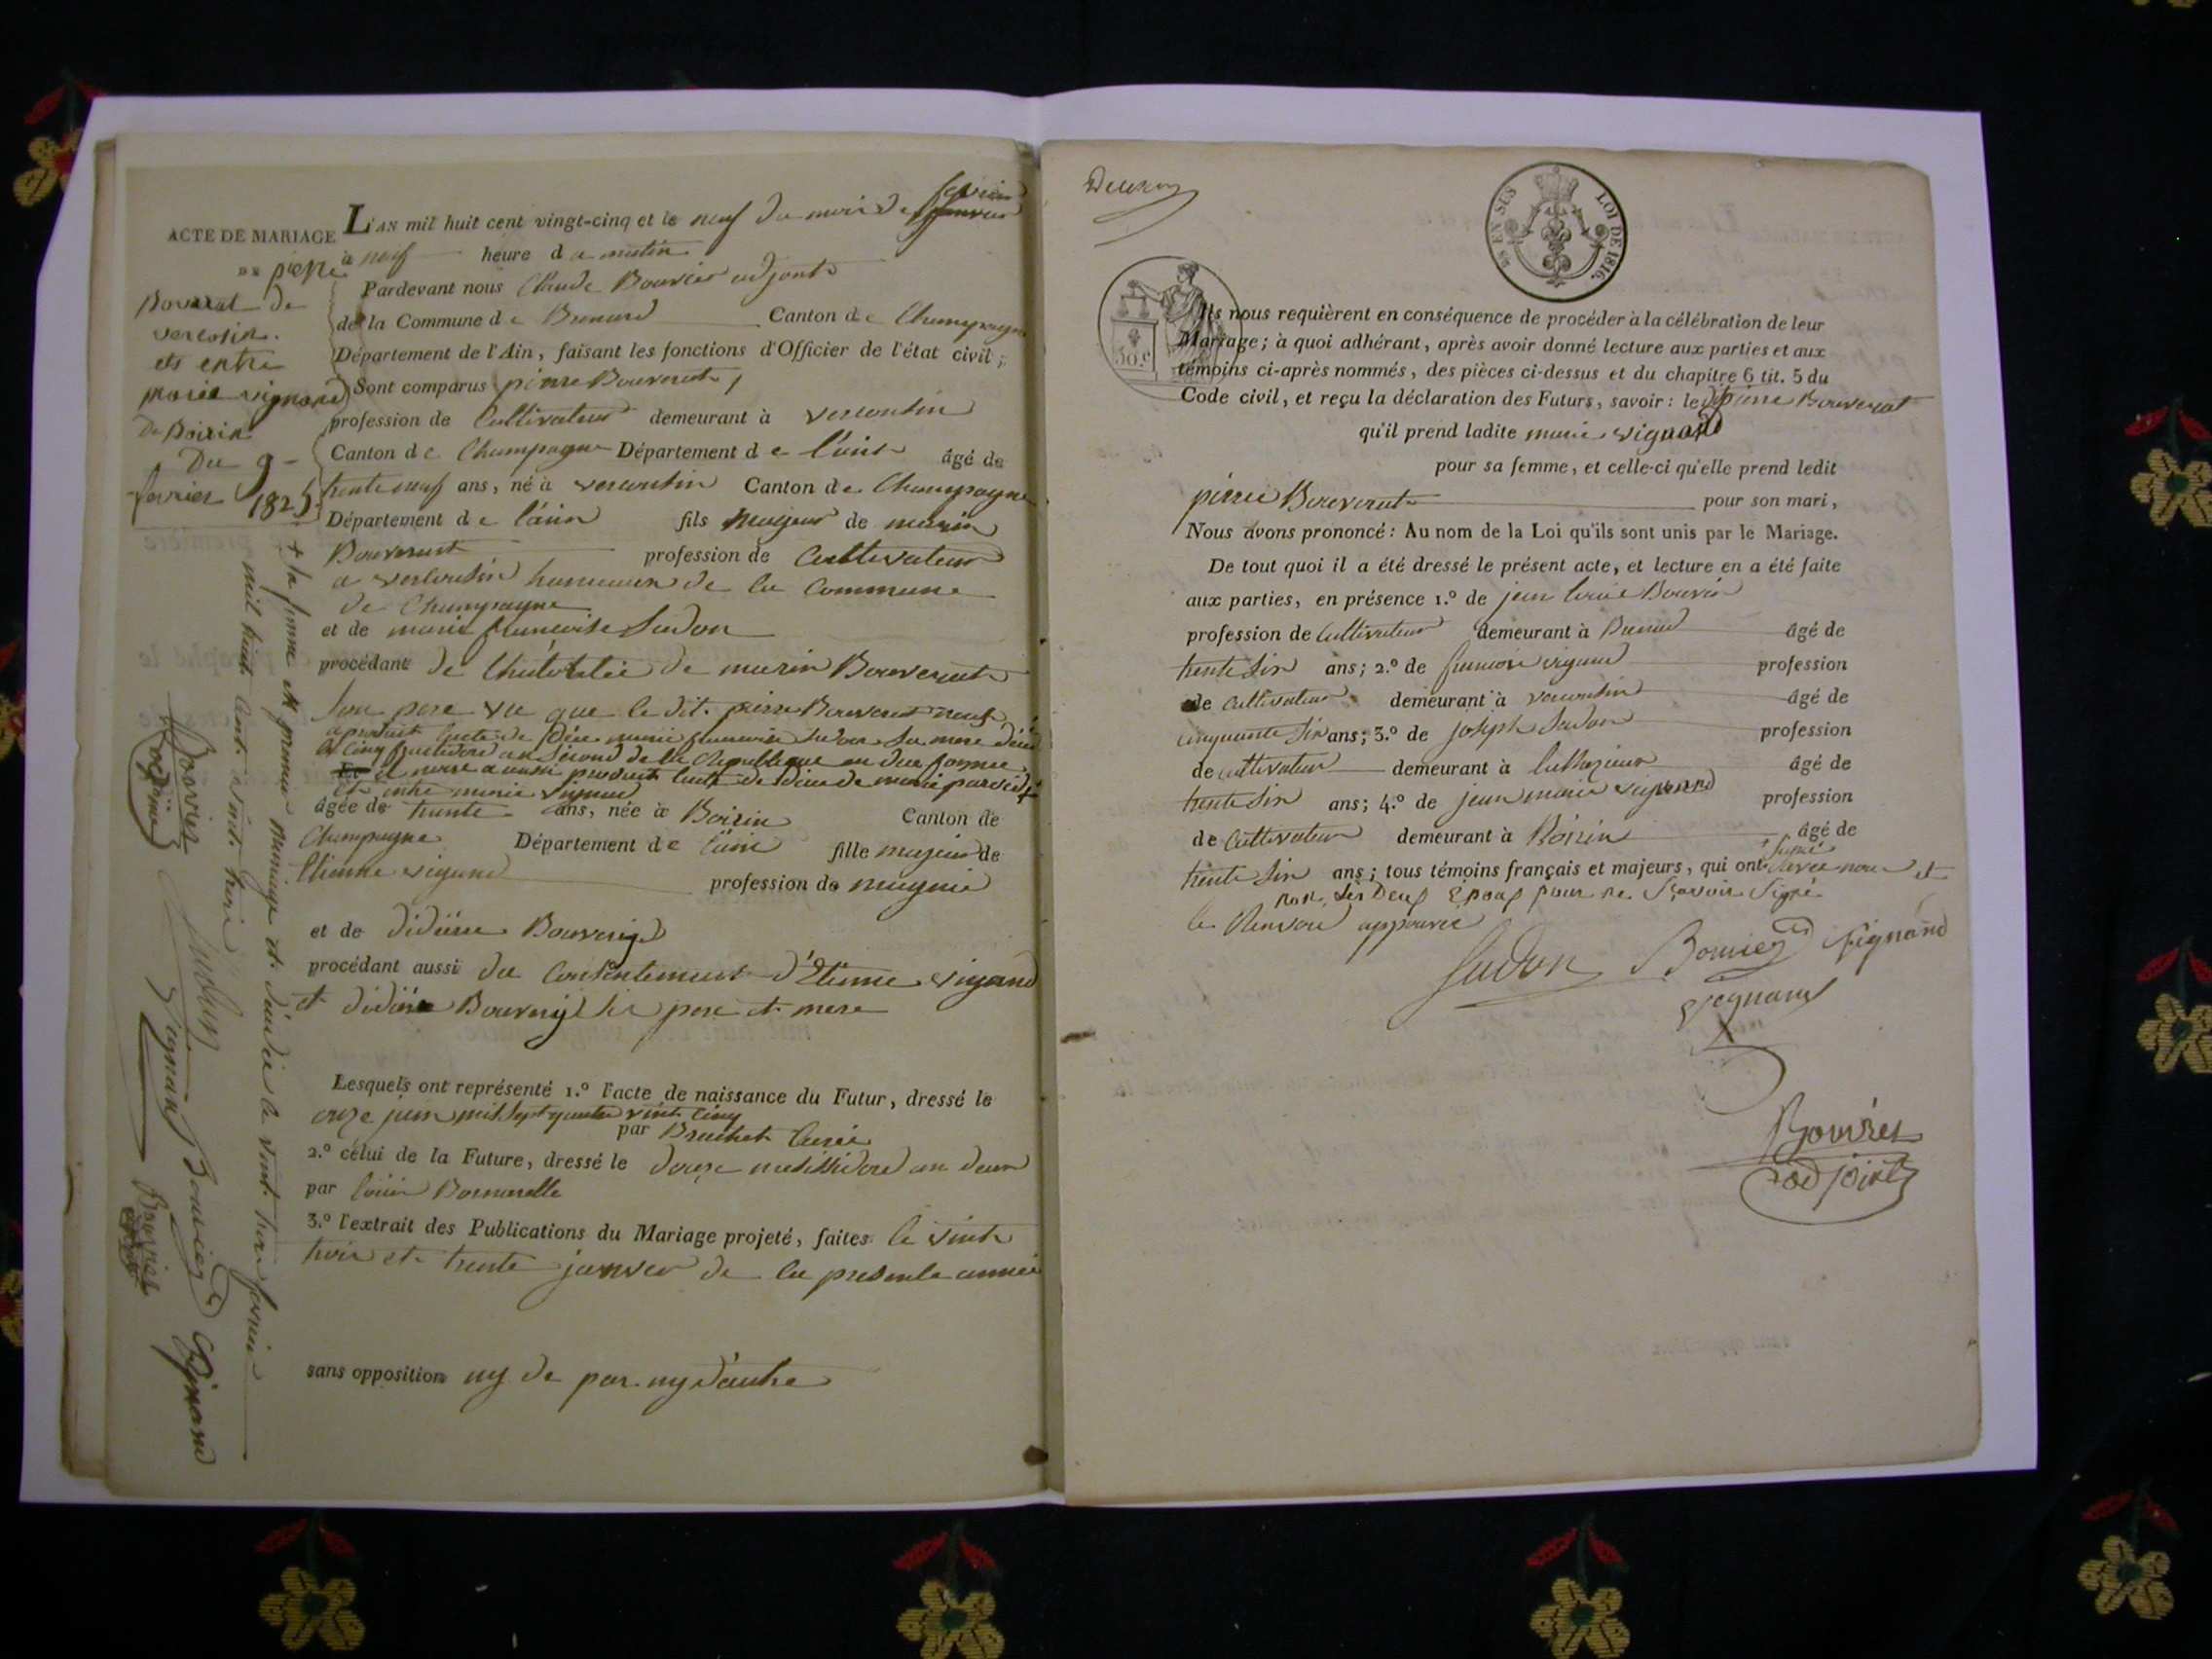 ACTE DE MARIAGE
DE pierre
Bouverat de
vercosin.
et entre
marie vignand
De Boirin
Du 9
fevrier 1825
L'AN mil huit cent vingt-cinq et le neuf du mois de fevrier
à neuf heure du matin
Pardevant nous Claude Bouvier adjoint
de la Commune de Brenard Canton de Champagne
Département de l'Ain, faisant les fonctions d'Officier de l'état civil;
Sont comparus pierre Bouverat
profession de Cultivateur demeurant à vercontin
Canton de Champagne Département de l'ain âgé de
trente neuf ans, né à vercontin Canton de Champagne
Département de l'ain fils Majeur de marin
Bouverat profession de Cultivateur
a vercoutin hameaux de la Commune
de Champagne
et de marie francoise Sudon
procédant de de marin Bouverat
Son pere vu que le dit pierre Bouverat
a produit de marie francoise Sudon Sa mere
an Second de la Republique
Et entre marie vignand
âgée de trente ans, née à Boirin Canton de
Champagne Département de l'ain fille majeur de
Etienne vignand profession de
et de didiere Bouverij
procédant aussi du Consentement d'Etienne vignand
et didiere Bouverij Ses pere et mere
Lesquels ont représenté 1.º l'acte de naissance du Futur, dressé le
onze juin mil Sept quatre vint Cinq
par Bruchet Curée
2.º célui de la Future, dressé le douze messidor an deux
par Louis
3.º l'extrait des Publications du Mariage projeté, faites le vint
trois et trente janvier de la presente année
sans opposition ny de par ny d'autre
+ la femme et premier mariage et decedée le vint trois fevrier
mil huit Cents vint trois
Bouvier
adjoint
Sudon
Vignand
Bouvier
Vignand
Bouvier
LOI DE 1816.
EN SUS
30.c
Ils nous requièrent en conséquence de procéder à la célébration de leur
Mariage; à quoi adhérant, après avoir donné lecture aux parties et aux
témoins ci-après nommés, des pièces ci-dessus et du chapitre 6 tit. 5 du
Code civil, et reçu la déclaration des Futurs, savoir: le dt pierre Bouverat
qu'il prend ladite marie vignand
pour sa femme, et celle-ci qu'elle prend ledit
pierre Bouverat pour son mari,
Nous avons prononcé: Au nom de la Loi qu'ils sont unis par le Mariage.
De tout quoi il a été dressé le présent acte, et lecture en a été faite
aux parties, en présence 1.º de jean louis Bouvier
profession de Cultivateur demeurant à Brenard âgé de
trente Six ans; 2.º de francois vignand profession
de Cultivateur demeurant à vercontin âgé de
cinquante Six ans; 3.º de joseph Sudon profession
de cultivateur demeurant à âgé de
trente Six ans; 4.º de jean marie vignand profession
de Cultivateur demeurant à Boirin âgé de
trente Six ans; tous témoins français et majeurs, qui ont Signé avec nous et
non Les Deux Epoux pour ne Scavoir Signé
le Renvoie approuvée
Sudon Bouvier Vignand
Vignand
Bouvier
adjoint